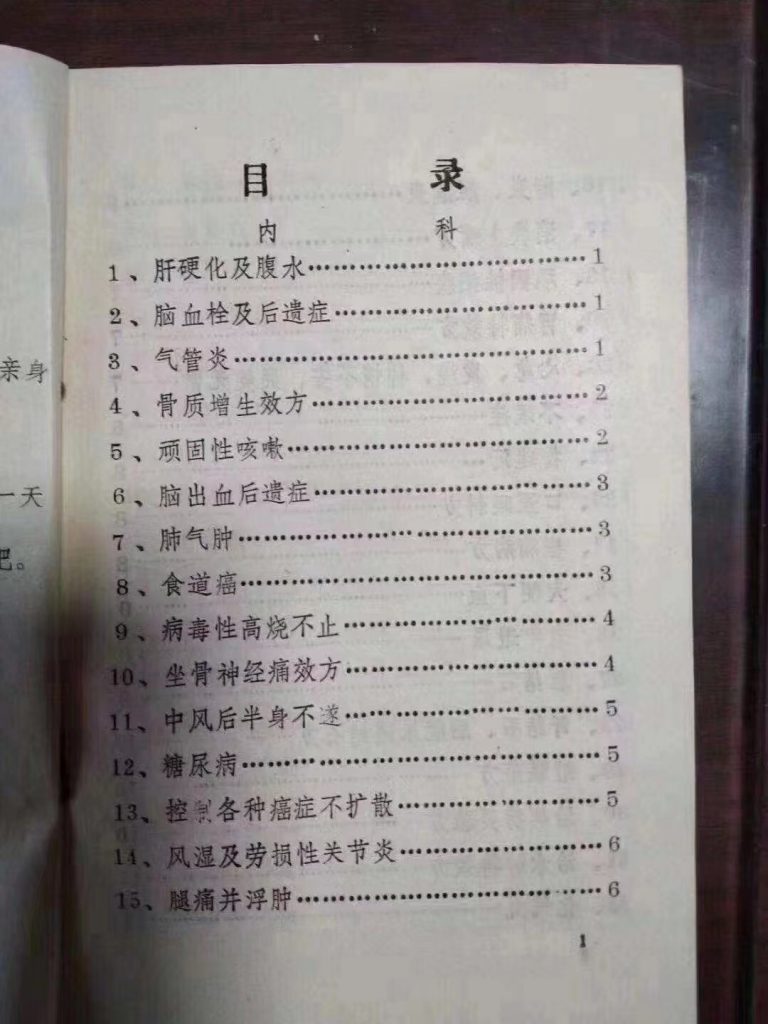 目 录
内 科
1、肝硬化及腹水……………………………1
2、脑血栓及后遗症…………………………1
3、气管炎……………………………………1
4、骨质增生效方……………………………2
5、顽固性咳嗽………………………………2
6、脑出血后遗症……………………………3
7、肺气肿……………………………………3
8、食道癌……………………………………3
9、病毒性高烧不止…………………………4
10、坐骨神经痛效方…………………………4
11、中风后半身不遂…………………………5
12、糖尿病……………………………………5
13、控制各种癌症不扩散……………………5
14、风湿及劳损性关节炎……………………6
15、腿痛并浮肿………………………………6
1
亲身
一天
吧。